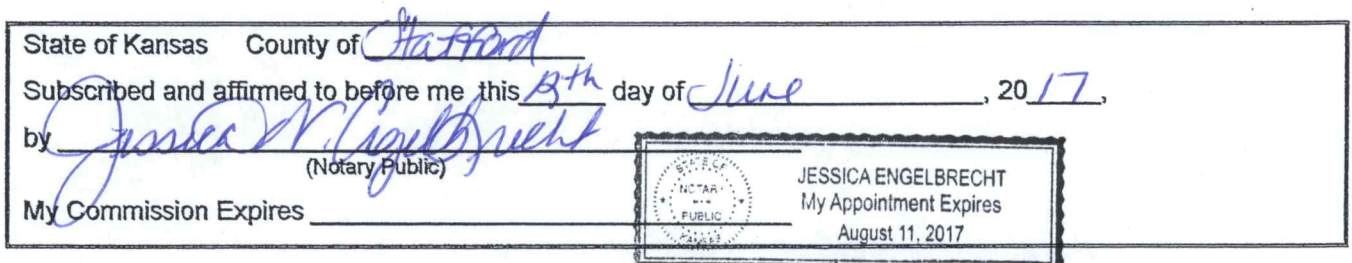 State of Kansas County of Stafford
Subscribed and affirmed to before me this 13th day of June, 2017,
by Jessica N. Engelbrecht
(Notary Public)
My Commission Expires
STATE OF
NOTARY
PUBLIC
KANSAS
JESSICA ENGELBRECHT
My Appointment Expires
August 11, 2017